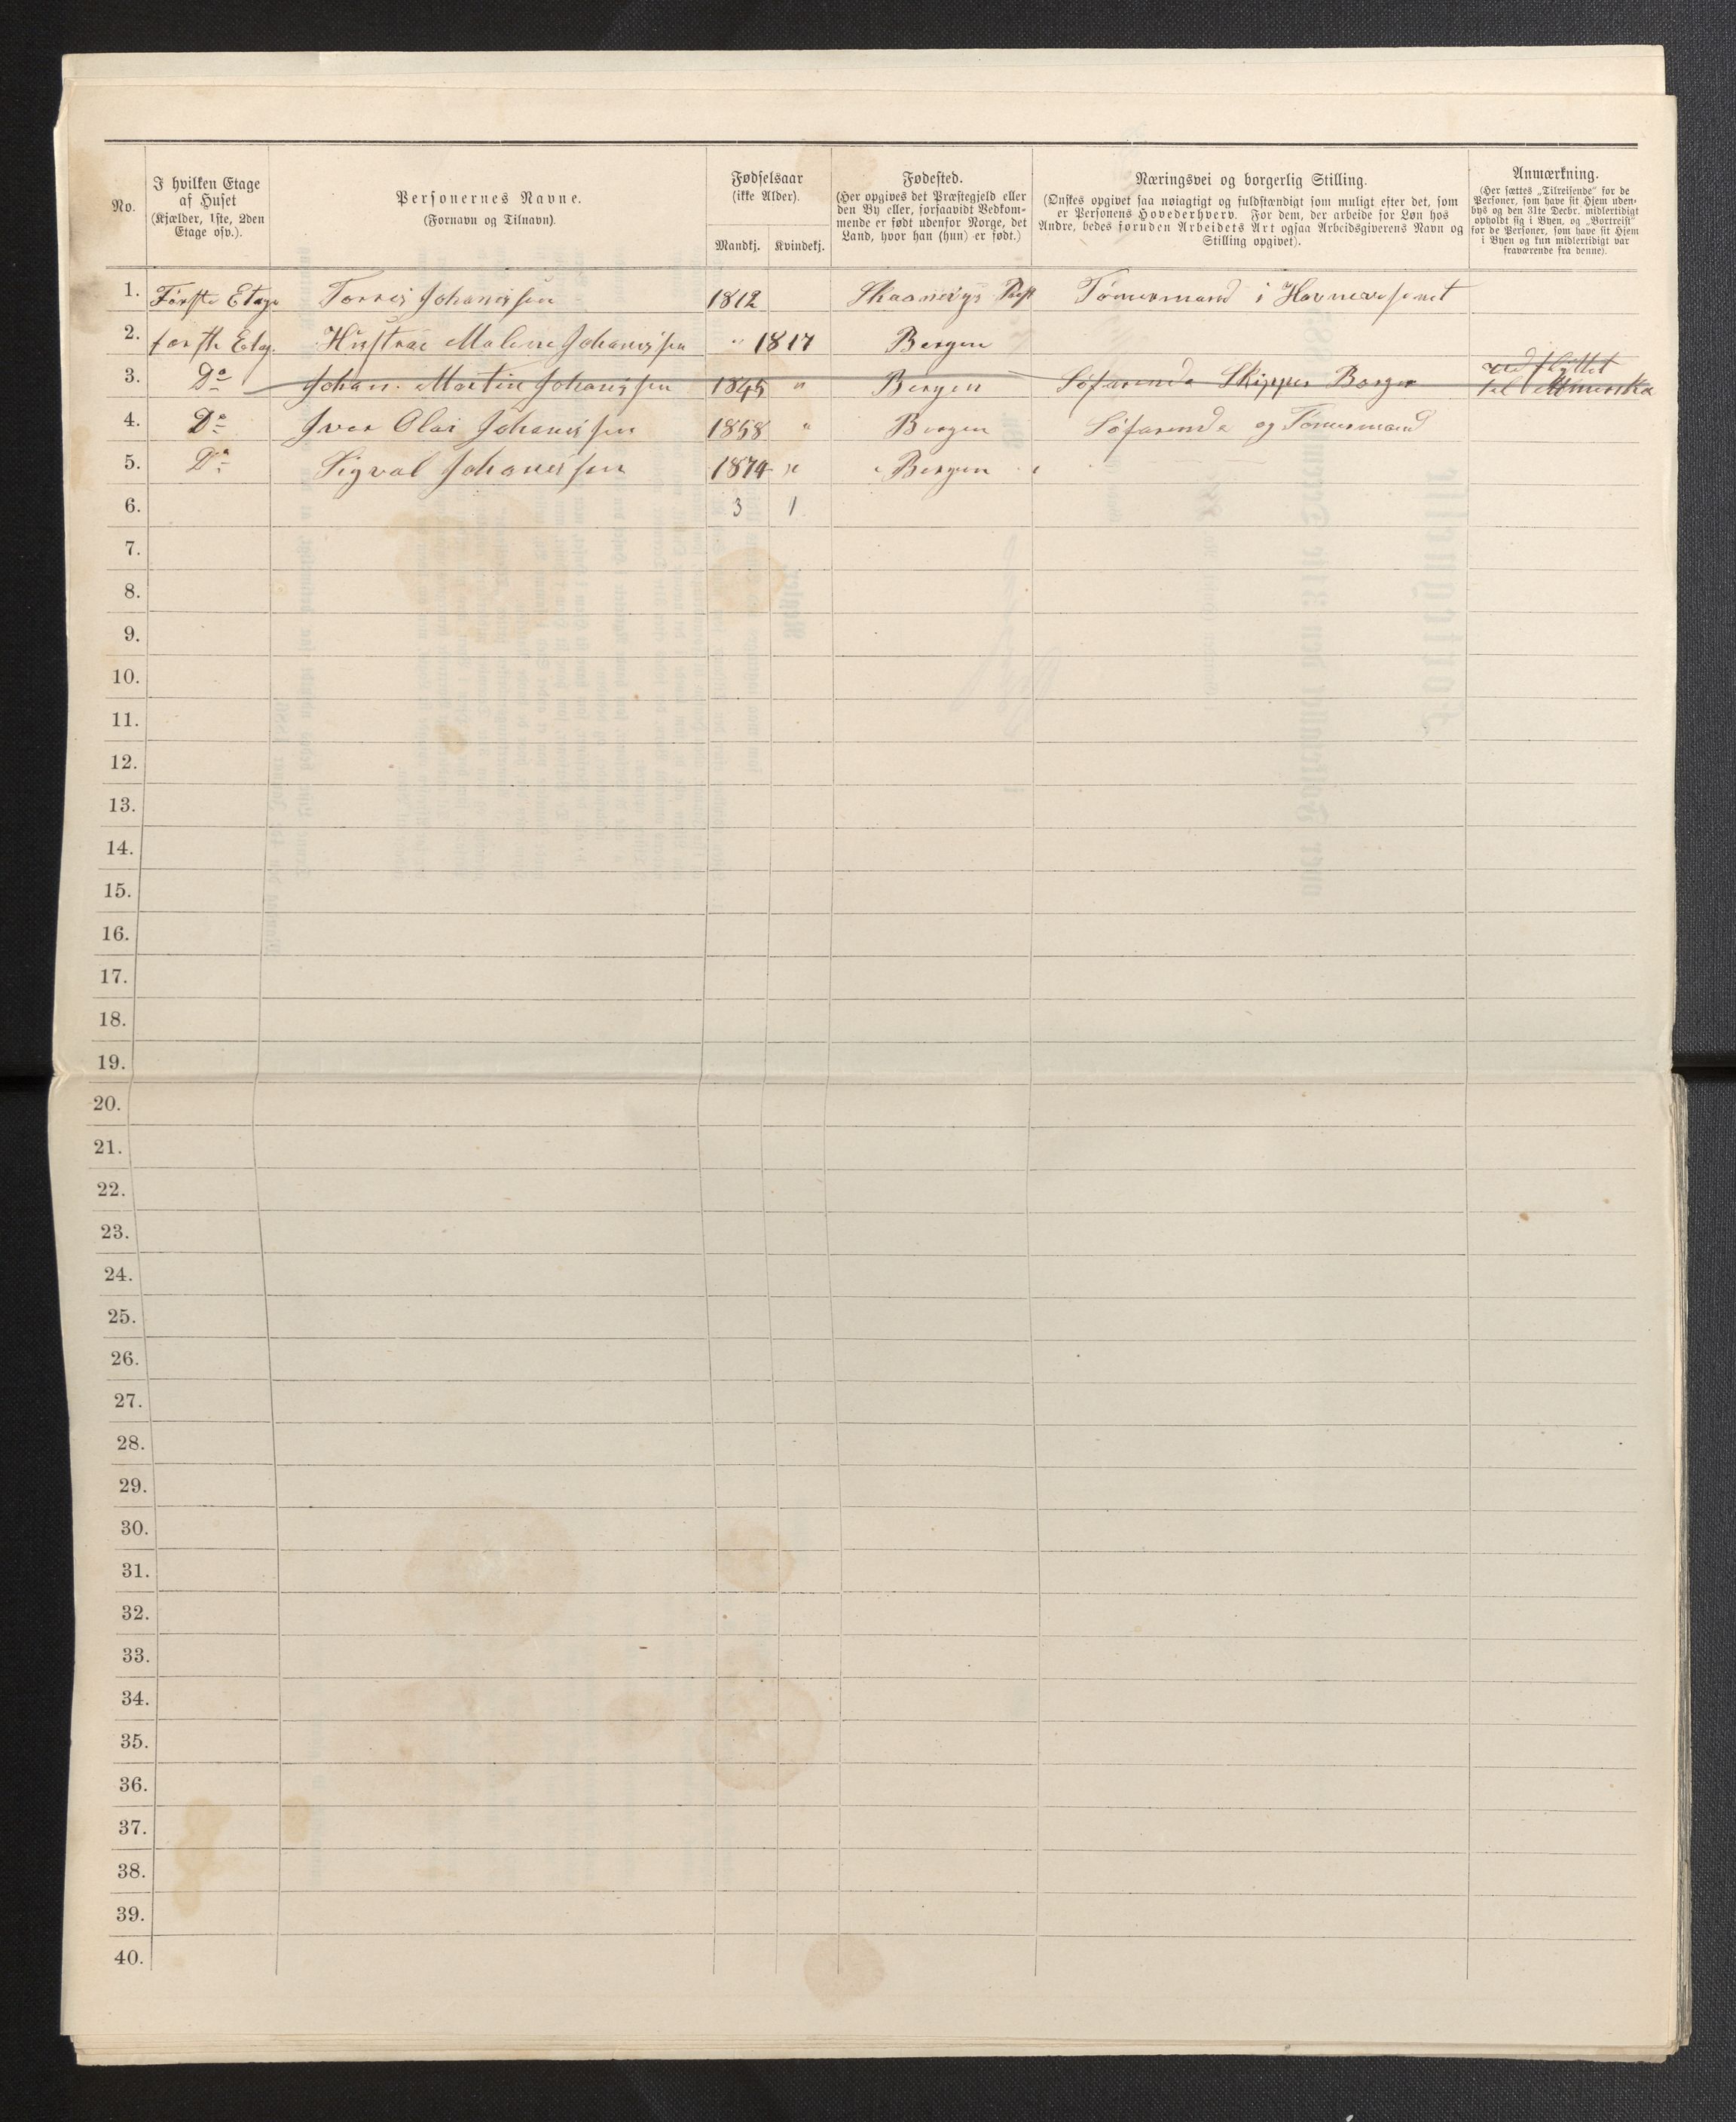 No.
I hvilken Etage af Huset
(Kjælder, 1ste, 2den Etage osv.).
Personernes Navne.
(Fornavn og Tilnavn).
Fødselsaar
(ikke Alder).
Mandkj. Kvindekj.
Fødested.
(Her opgives det Præstegjeld eller den By eller, forsaavidt Vedkommende er født udenfor Norge, det Land, hvor han (hun) er født.)
Næringsvei og borgerlig Stilling.
(Ønskes opgivet saa nøiagtigt og fuldstændigt som muligt efter det, som er Personens Hovederhverv. For dem, der arbeide for Løn hos Andre, bedes foruden Arbeidets Art ogsaa Arbeidsgiverens Navn og Stilling opgivet).
Anmærkning.
(Her sættes „Tilreisende" for de Personer, som have sit Hjem udenbys og den 31te Decbr. midlertidigt opholdt sig i Byen, og „Bortreist" for de Personer, som have sit Hjem i Byen og kun midlertidigt var fraværende fra denne).
1. Første Etage Torris Johannissen 1812 Skaanevigs Præst Tømermand i Havnevæsenet
2. første Etag. Hustrue Malene Johannissen " 1817 Bergen
3. Do Johan Martin Johanissen 1845 " Bergen Søfarende Skipper Borger udflyttet til Amerika
4. Do Iver Olai Johanissen 1858 " Bergen Søfarende og Tømermand
5. Do Sigval Johanissen 1874 " Bergen
6. 3 1
7.
8.
9.
10.
11.
12.
13.
14.
15.
16.
17.
18.
19.
20.
21.
22.
23.
24.
25.
26.
27.
28.
29.
30.
31.
32.
33.
34.
35.
36.
37.
38.
39.
40.